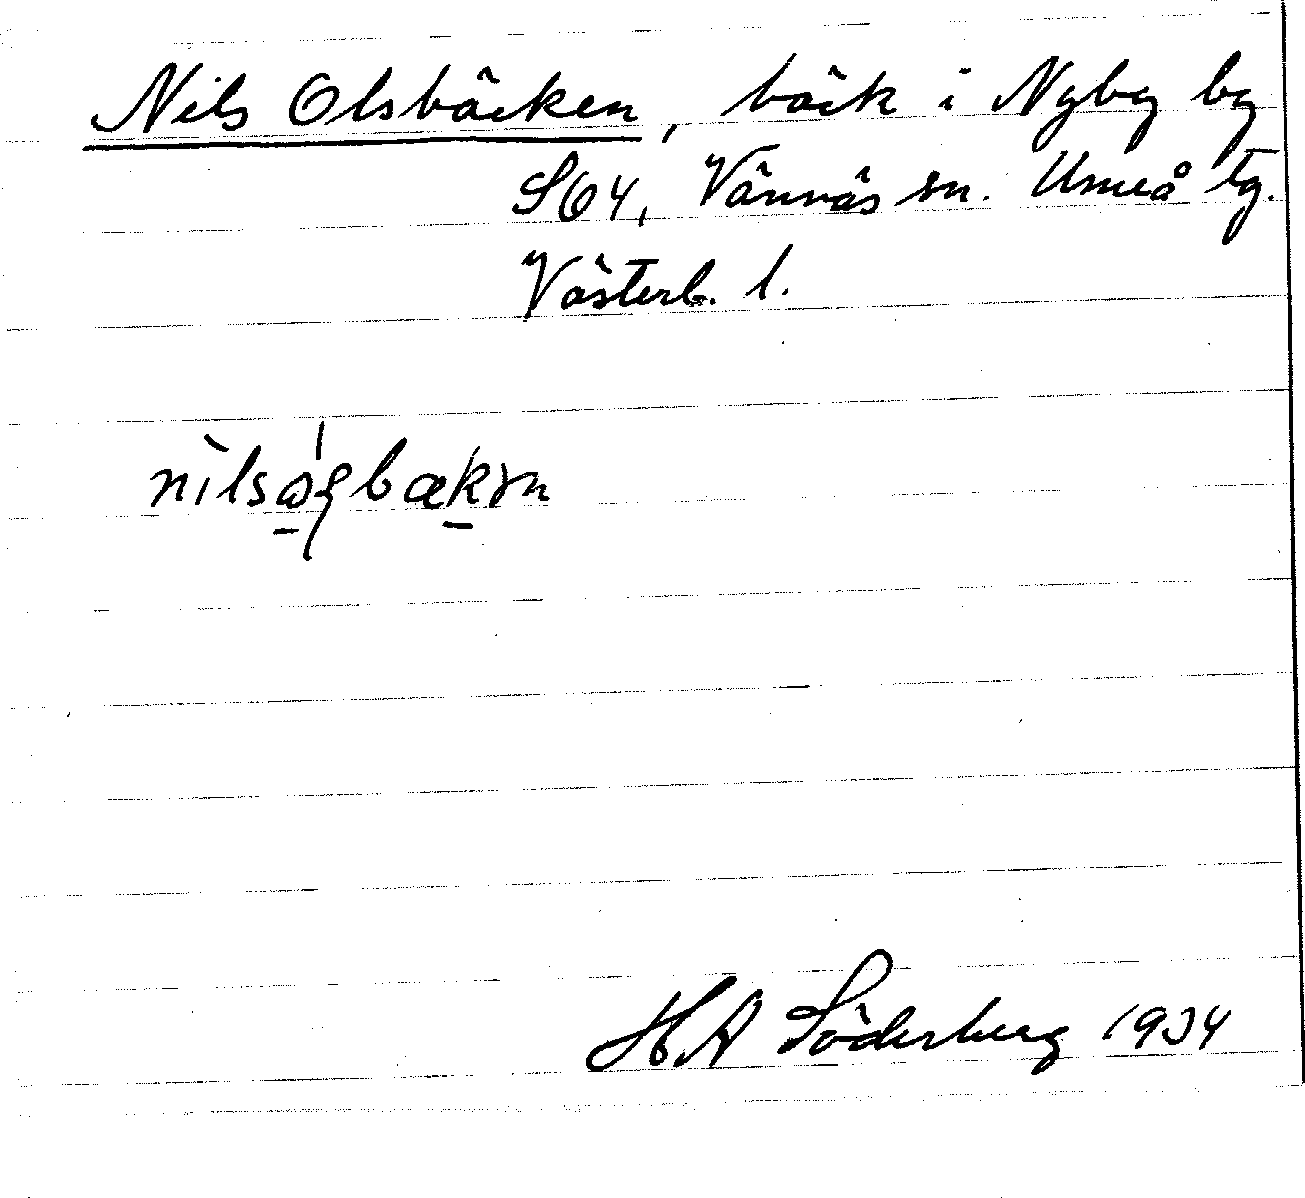 Nils Olsbäcken, bäck i Nyby by
S64, Vännäs sn. Umeå tg.
Västerb. l.
H A Söderberg 1934